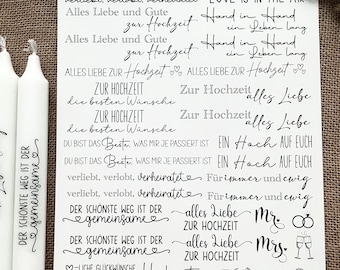 verliebt, verlobt, verheiratet LOVE IS IN THE AIR
Alles Liebe und Gute
zur Hochzeit
Hand in Hand
ein Leben lang
Alles Liebe und Gute
zur Hochzeit
Hand in Hand
ein Leben lang
ALLES LIEBE ZUR Hochzeit
ALLES LIEBE ZUR Hochzeit
ZUR HOCHZEIT
die besten Wünsche
Zur Hochzeit
alles Liebe
ZUR HOCHZEIT
die besten Wünsche
Zur Hochzeit
alles Liebe
DU BIST DAS Beste, WAS MIR JE PASSIERT IST
EIN Hoch AUF EUCH
DU BIST DAS Beste, WAS MIR JE PASSIERT IST
EIN Hoch AUF EUCH
verliebt, verlobt, verheiratet
Für immer und ewig
verliebt, verlobt, verheiratet
Für immer und ewig
DER SCHÖNSTE WEG IST DER
gemeinsame
alles Liebe
ZUR HOCHZEIT
Mr.
DER SCHÖNSTE WEG IST DER
gemeinsame
alles Liebe
ZUR HOCHZEIT
Mrs.
DER SCHÖNSTE WEG IST DER
gemeinsame